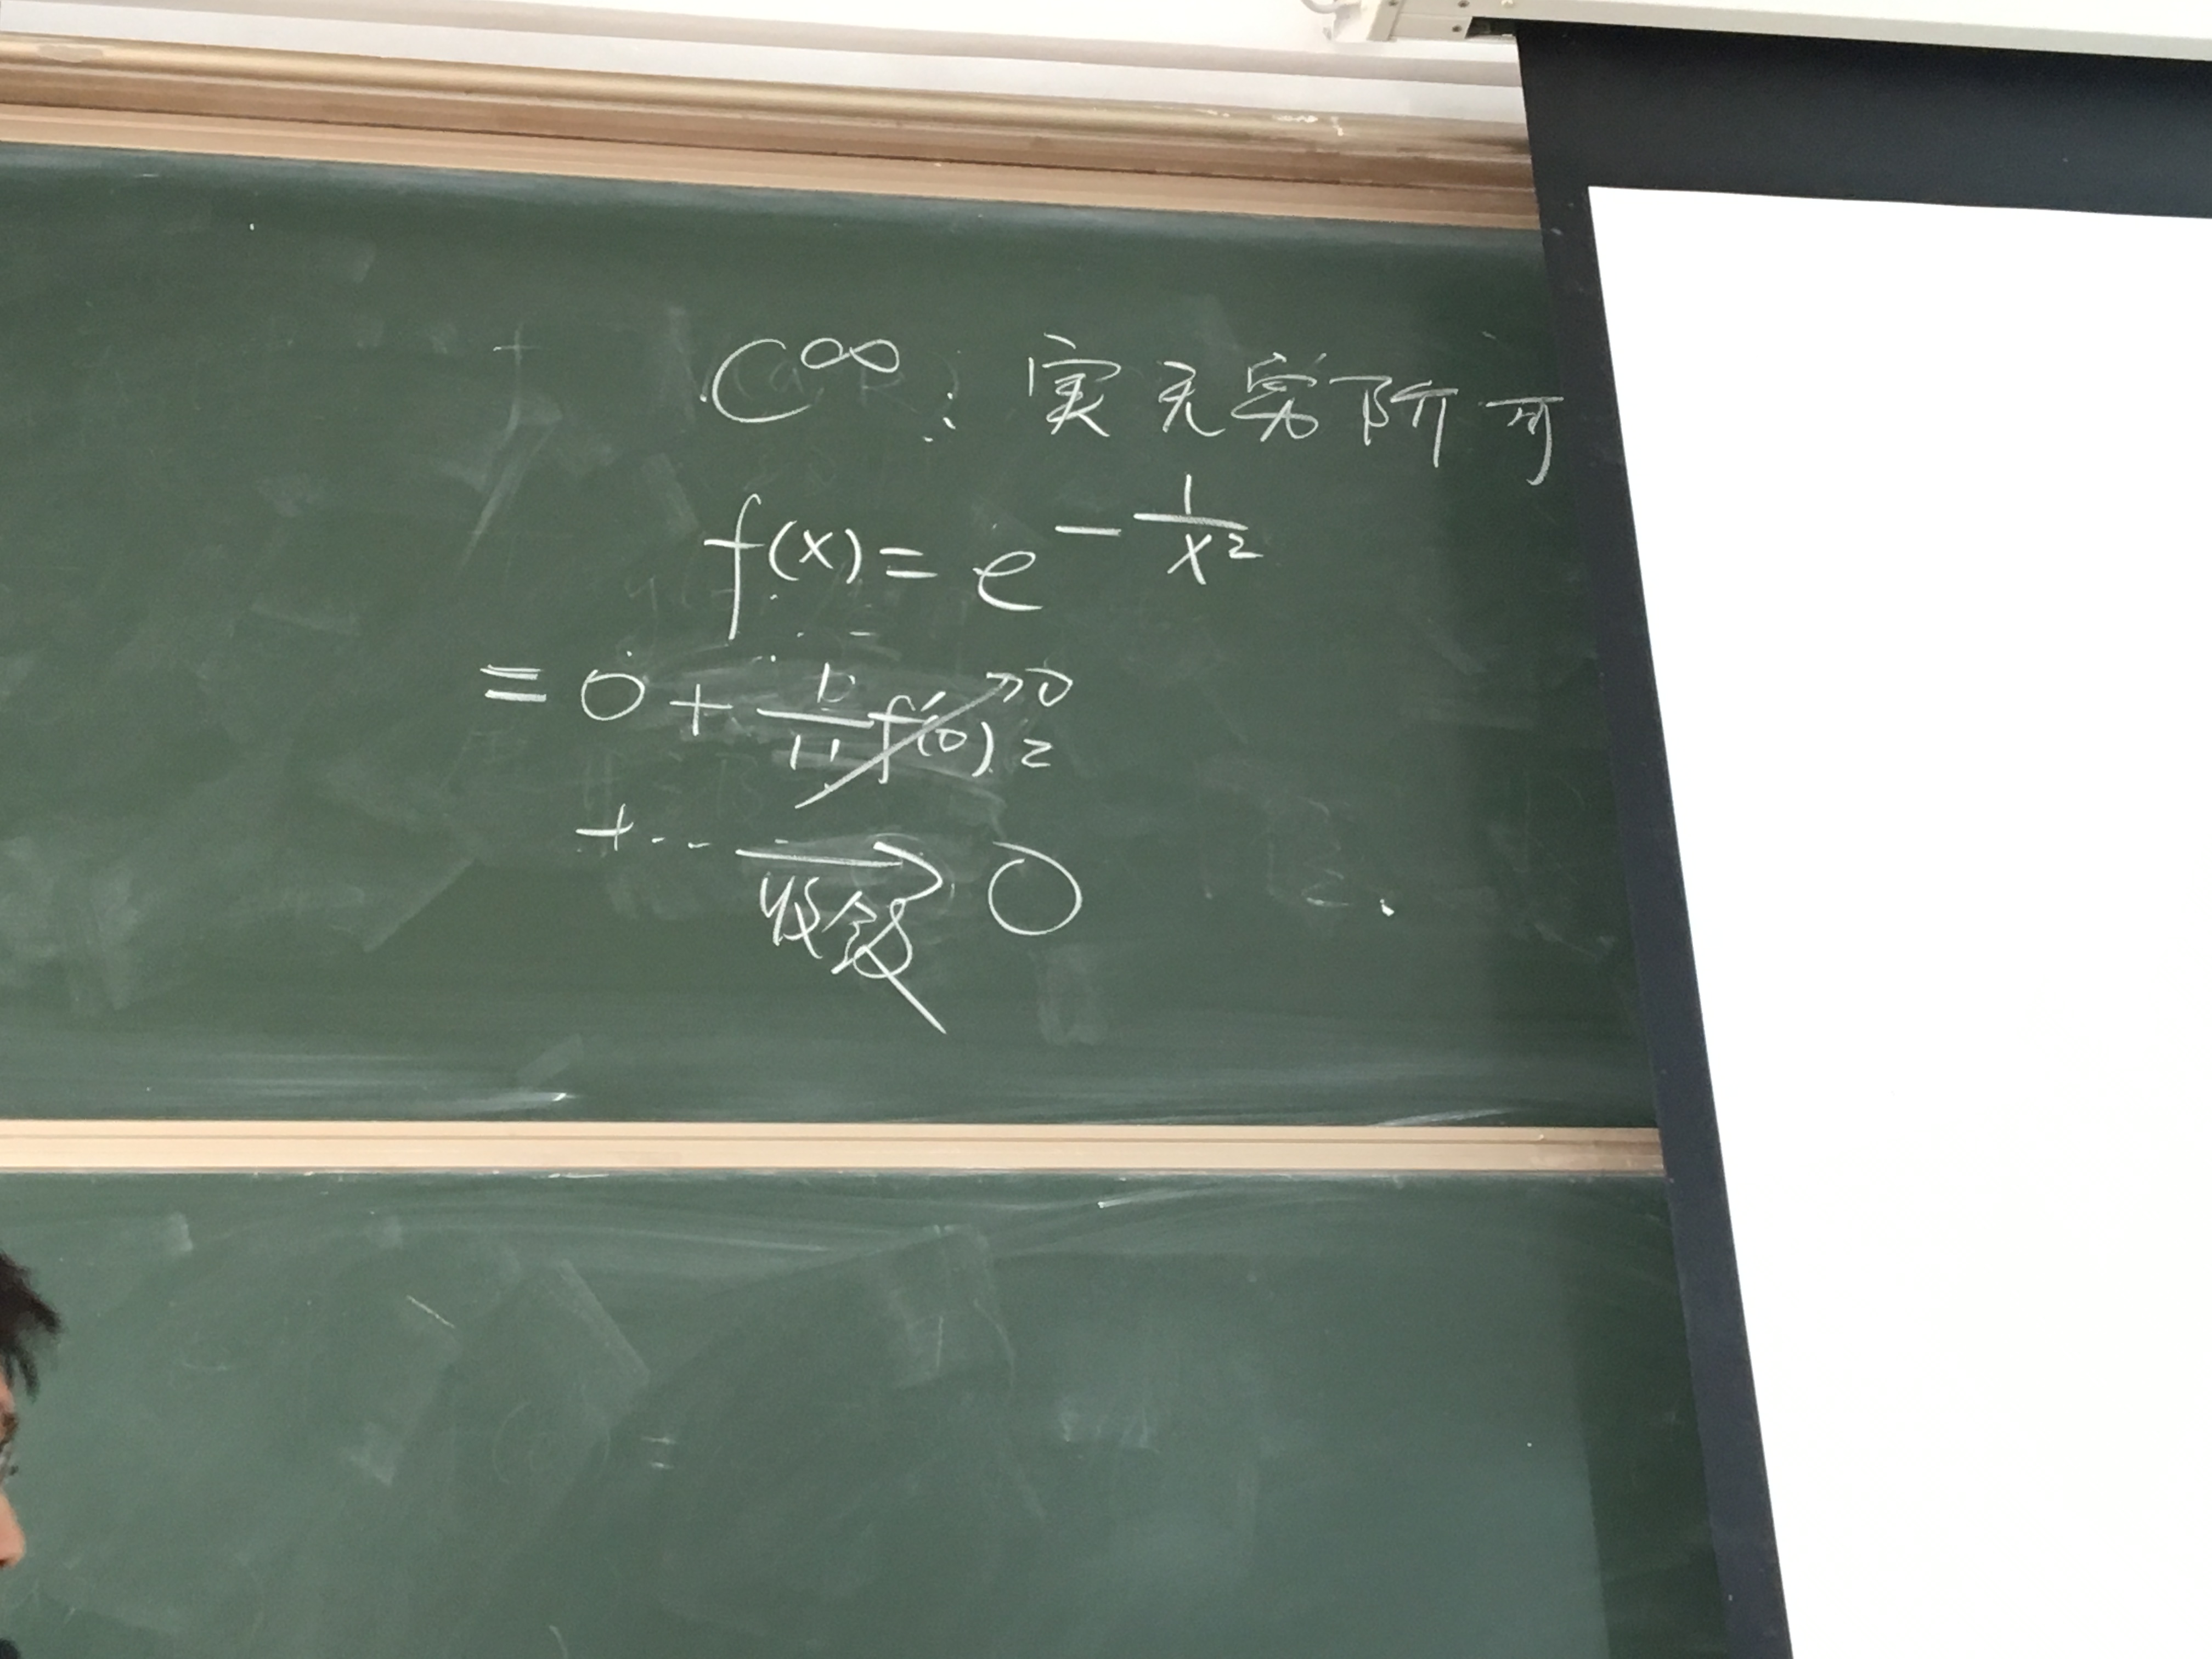 C^∞: 实无穷阶可
f(x) = e^{-\frac{1}{x^2}}
= 0 + \frac{1}{1!} f'(0) z → 0
+ ... → 0
收敛